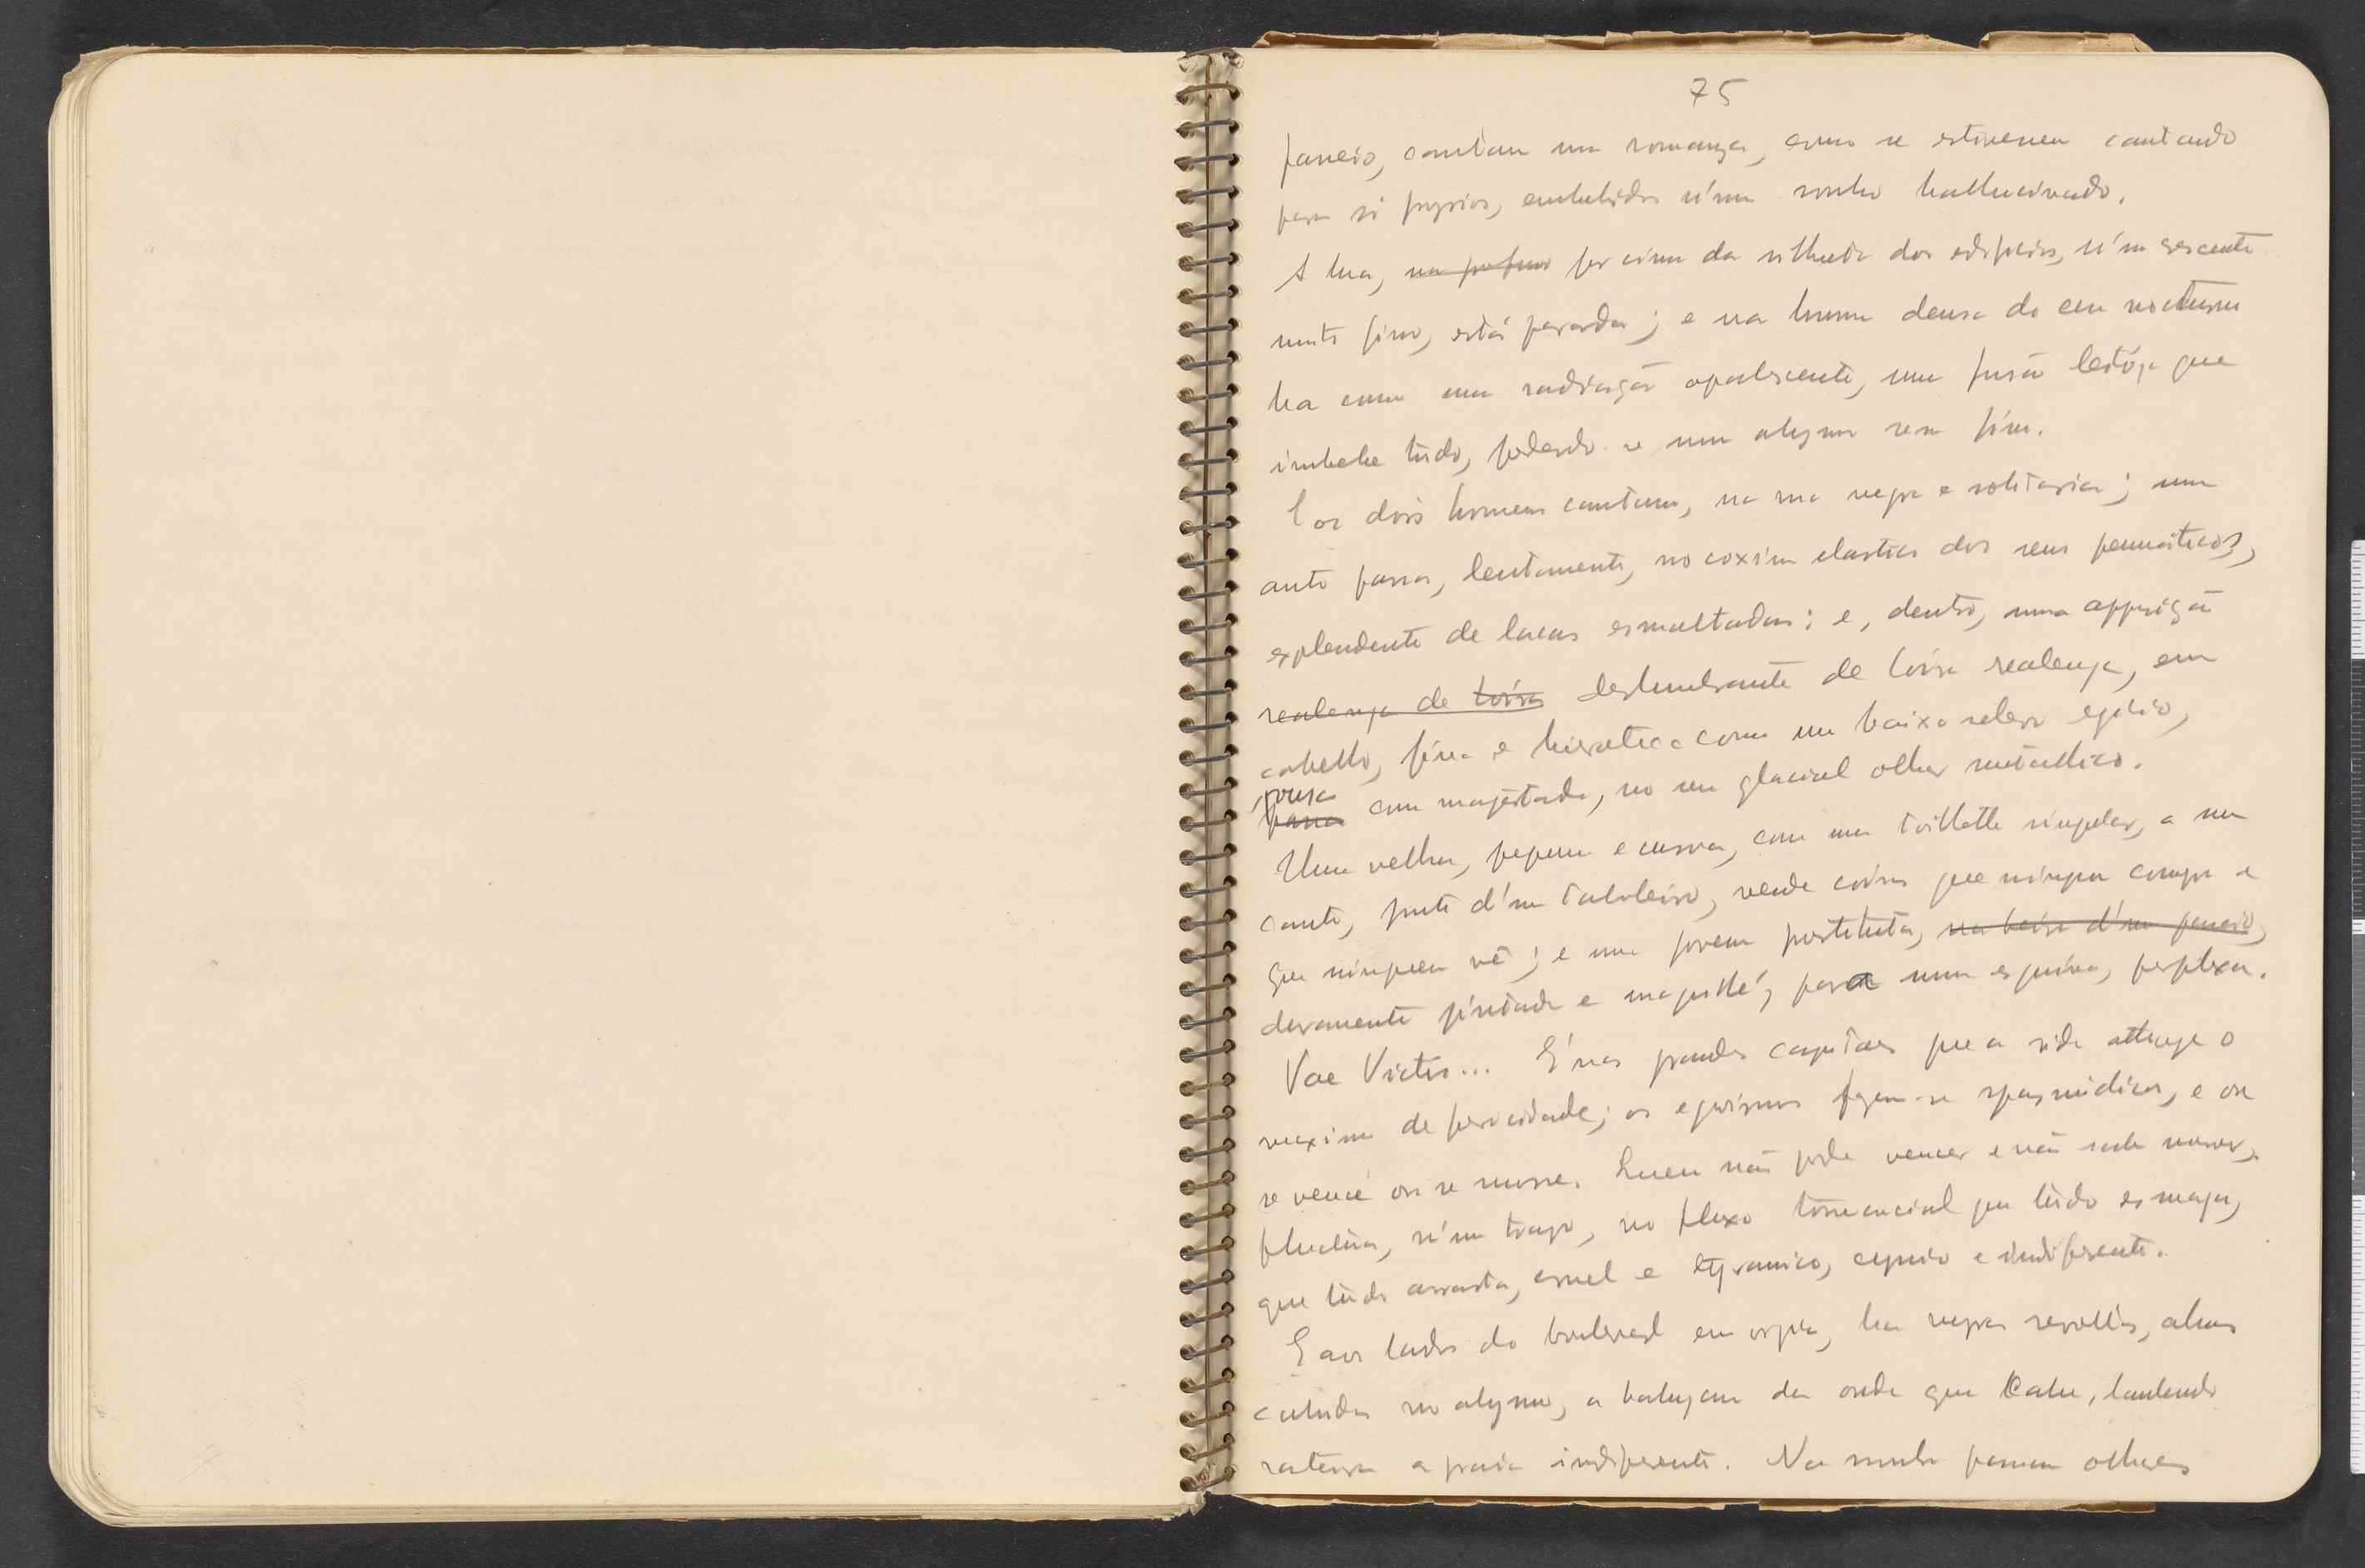 75
passeio, cantam uma romança, como se estivessem cantando
para si proprios, embebidos n'um sonho hallucinado.
A lua, por cima da silhueta dos edificios, n'um crescente
muito fino, está parada; e na bruma densa do ceu nocturno
ha como uma radiação opalescente, uma que
imbebe tudo, perdendo-se num abysmo sem fim.
E os dois homens cantam, na rua negra e solitaria; um
auto passa, lentamente, no coxim elastico dos seus pneumaticos,
explendente de lacas esmaltadas; e, dentro, uma apparição
realenga de loira deslumbrante de loira realenga, em
cabello, fina e hieratica como um baixo relevo egipcio,
pousa
passa com magestade, no seu glacial olhar metallico.
Uma velha, pequena e curva, com uma toillette singular, a um
canto, junto d'um taboleiro, vende coisas que ninguem compra e
que ninguem vê; e uma jovem prostituta, na beira d'um passeio,
duramente pintada e maquillé, para numa esquina, perplexa.
Vae Victis... E' nas grandes capitaes que a vida attinge o
maximo de ferocidade; os egoismos fazem-se espasmodicos, e ou
se vence ou se morre. Quem não pode vencer e não sabe morrer,
fluctua, n'um trapo, no fluxo torrencial que tudo esmaga,
que tudo arrasta, cruel e tyranico, cynico e indiferente.
E aos lados do boulevard em orgia, ha negras revoltas, almas
cahidas no abysmo, a da onda que cahe, lambendo
rasteira a praia indiferente. Na sombra passam olhares